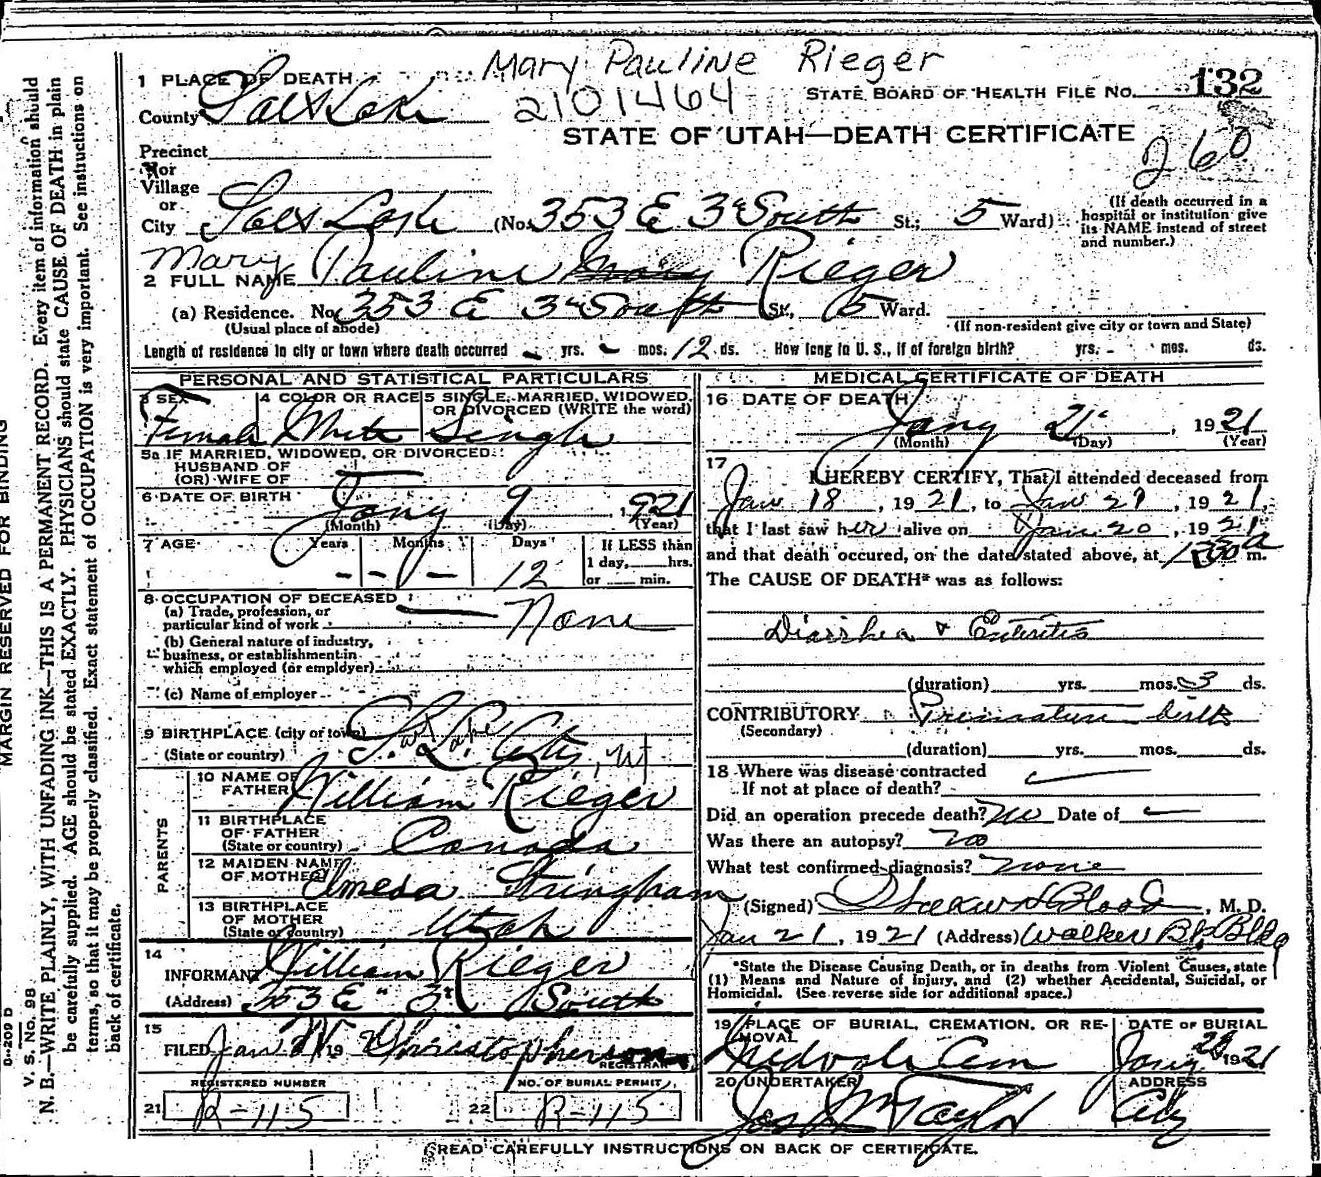 Mary Pauline Rieger
2101464
1 PLACE OF DEATH
STATE BOARD OF HEALTH FILE NO. 132
County Salt Lake
STATE OF UTAH—DEATH CERTIFICATE
260
Precinct
or
Village
or
City Salt Lake (No. 353 E 3rd South St.; 5 Ward)
(If death occurred in a
hospital or institution give
its NAME instead of street
and number.)
Mary
2 FULL NAME Pauline Mary Rieger
(a) Residence. No. 353 E 3rd South St., 5 Ward.
(Usual place of abode) (If non-resident give city or town and State)
Length of residence in city or town where death occurred - yrs. - mos. 12 ds. How long in U. S., if of foreign birth? yrs. - mos. ds.
PERSONAL AND STATISTICAL PARTICULARS
3 SEX 4 COLOR OR RACE 5 SINGLE, MARRIED, WIDOWED,
OR DIVORCED (WRITE the word)
Female White Single
5a IF MARRIED, WIDOWED, OR DIVORCED
HUSBAND OF
(OR) WIFE OF
6 DATE OF BIRTH Jany 9, 1921
(Month) (Day) (Year)
7 AGE Years Months Days If LESS than
1 day, hrs.
or min.
12
8 OCCUPATION OF DECEASED
(a) Trade, profession, or
particular kind of work None
(b) General nature of industry,
business, or establishment in
which employed (or employer)
(c) Name of employer
9 BIRTHPLACE (city or town) S. L. City, Ut
(State or country)
PARENTS
10 NAME OF
FATHER William Rieger
11 BIRTHPLACE
OF FATHER
(State or country) Canada
12 MAIDEN NAME
OF MOTHER Stringham
13 BIRTHPLACE
OF MOTHER
(State or country) Utah
14
INFORMANT William Rieger
(Address) 353 E 3rd South
15
FILED Jan 19 Christopherson
REGISTRAR
REGISTERED NUMBER NO. OF BURIAL PERMIT
21 R-115 22 R-115
MEDICAL CERTIFICATE OF DEATH
16 DATE OF DEATH
Jany 21, 1921
(Month) (Day) (Year)
17
I HEREBY CERTIFY, That I attended deceased from
Jan 18, 1921, to Jan 21, 1921,
that I last saw her alive on Jan 20, 1921
and that death occured, on the date stated above, at m.
The CAUSE OF DEATH* was as follows:
Diarrhea & Enteritis
(duration) yrs. mos. 3 ds.
CONTRIBUTORY Premature birth
(Secondary)
(duration) yrs. mos. ds.
18 Where was disease contracted
If not at place of death?
Did an operation precede death? no Date of
Was there an autopsy? no
What test confirmed diagnosis? none
(Signed) Blood, M. D.
Jan 21, 1921 (Address) Walker Bk Bldg
*State the Disease Causing Death, or in deaths from Violent Causes, state
(1) Means and Nature of Injury, and (2) whether Accidental, Suicidal, or
Homicidal. (See reverse side for additional space.)
19 PLACE OF BURIAL, CREMATION, OR RE-
MOVAL
DATE OF BURIAL
Midvale Cem Jany 1921
20 UNDERTAKER ADDRESS
Jos Wm Taylor City
READ CAREFULLY INSTRUCTIONS ON BACK OF CERTIFICATE.
MARGIN RESERVED FOR BINDING
D-209 D
V. S. No. 98
N. B.—WRITE PLAINLY, WITH UNFADING INK—THIS IS A PERMANENT RECORD. Every item of information should
be carefully supplied. AGE should be stated EXACTLY. PHYSICIANS should state CAUSE OF DEATH in plain
terms, so that it may be properly classified. Exact statement of OCCUPATION is very important. See instructions on
back of certificate.